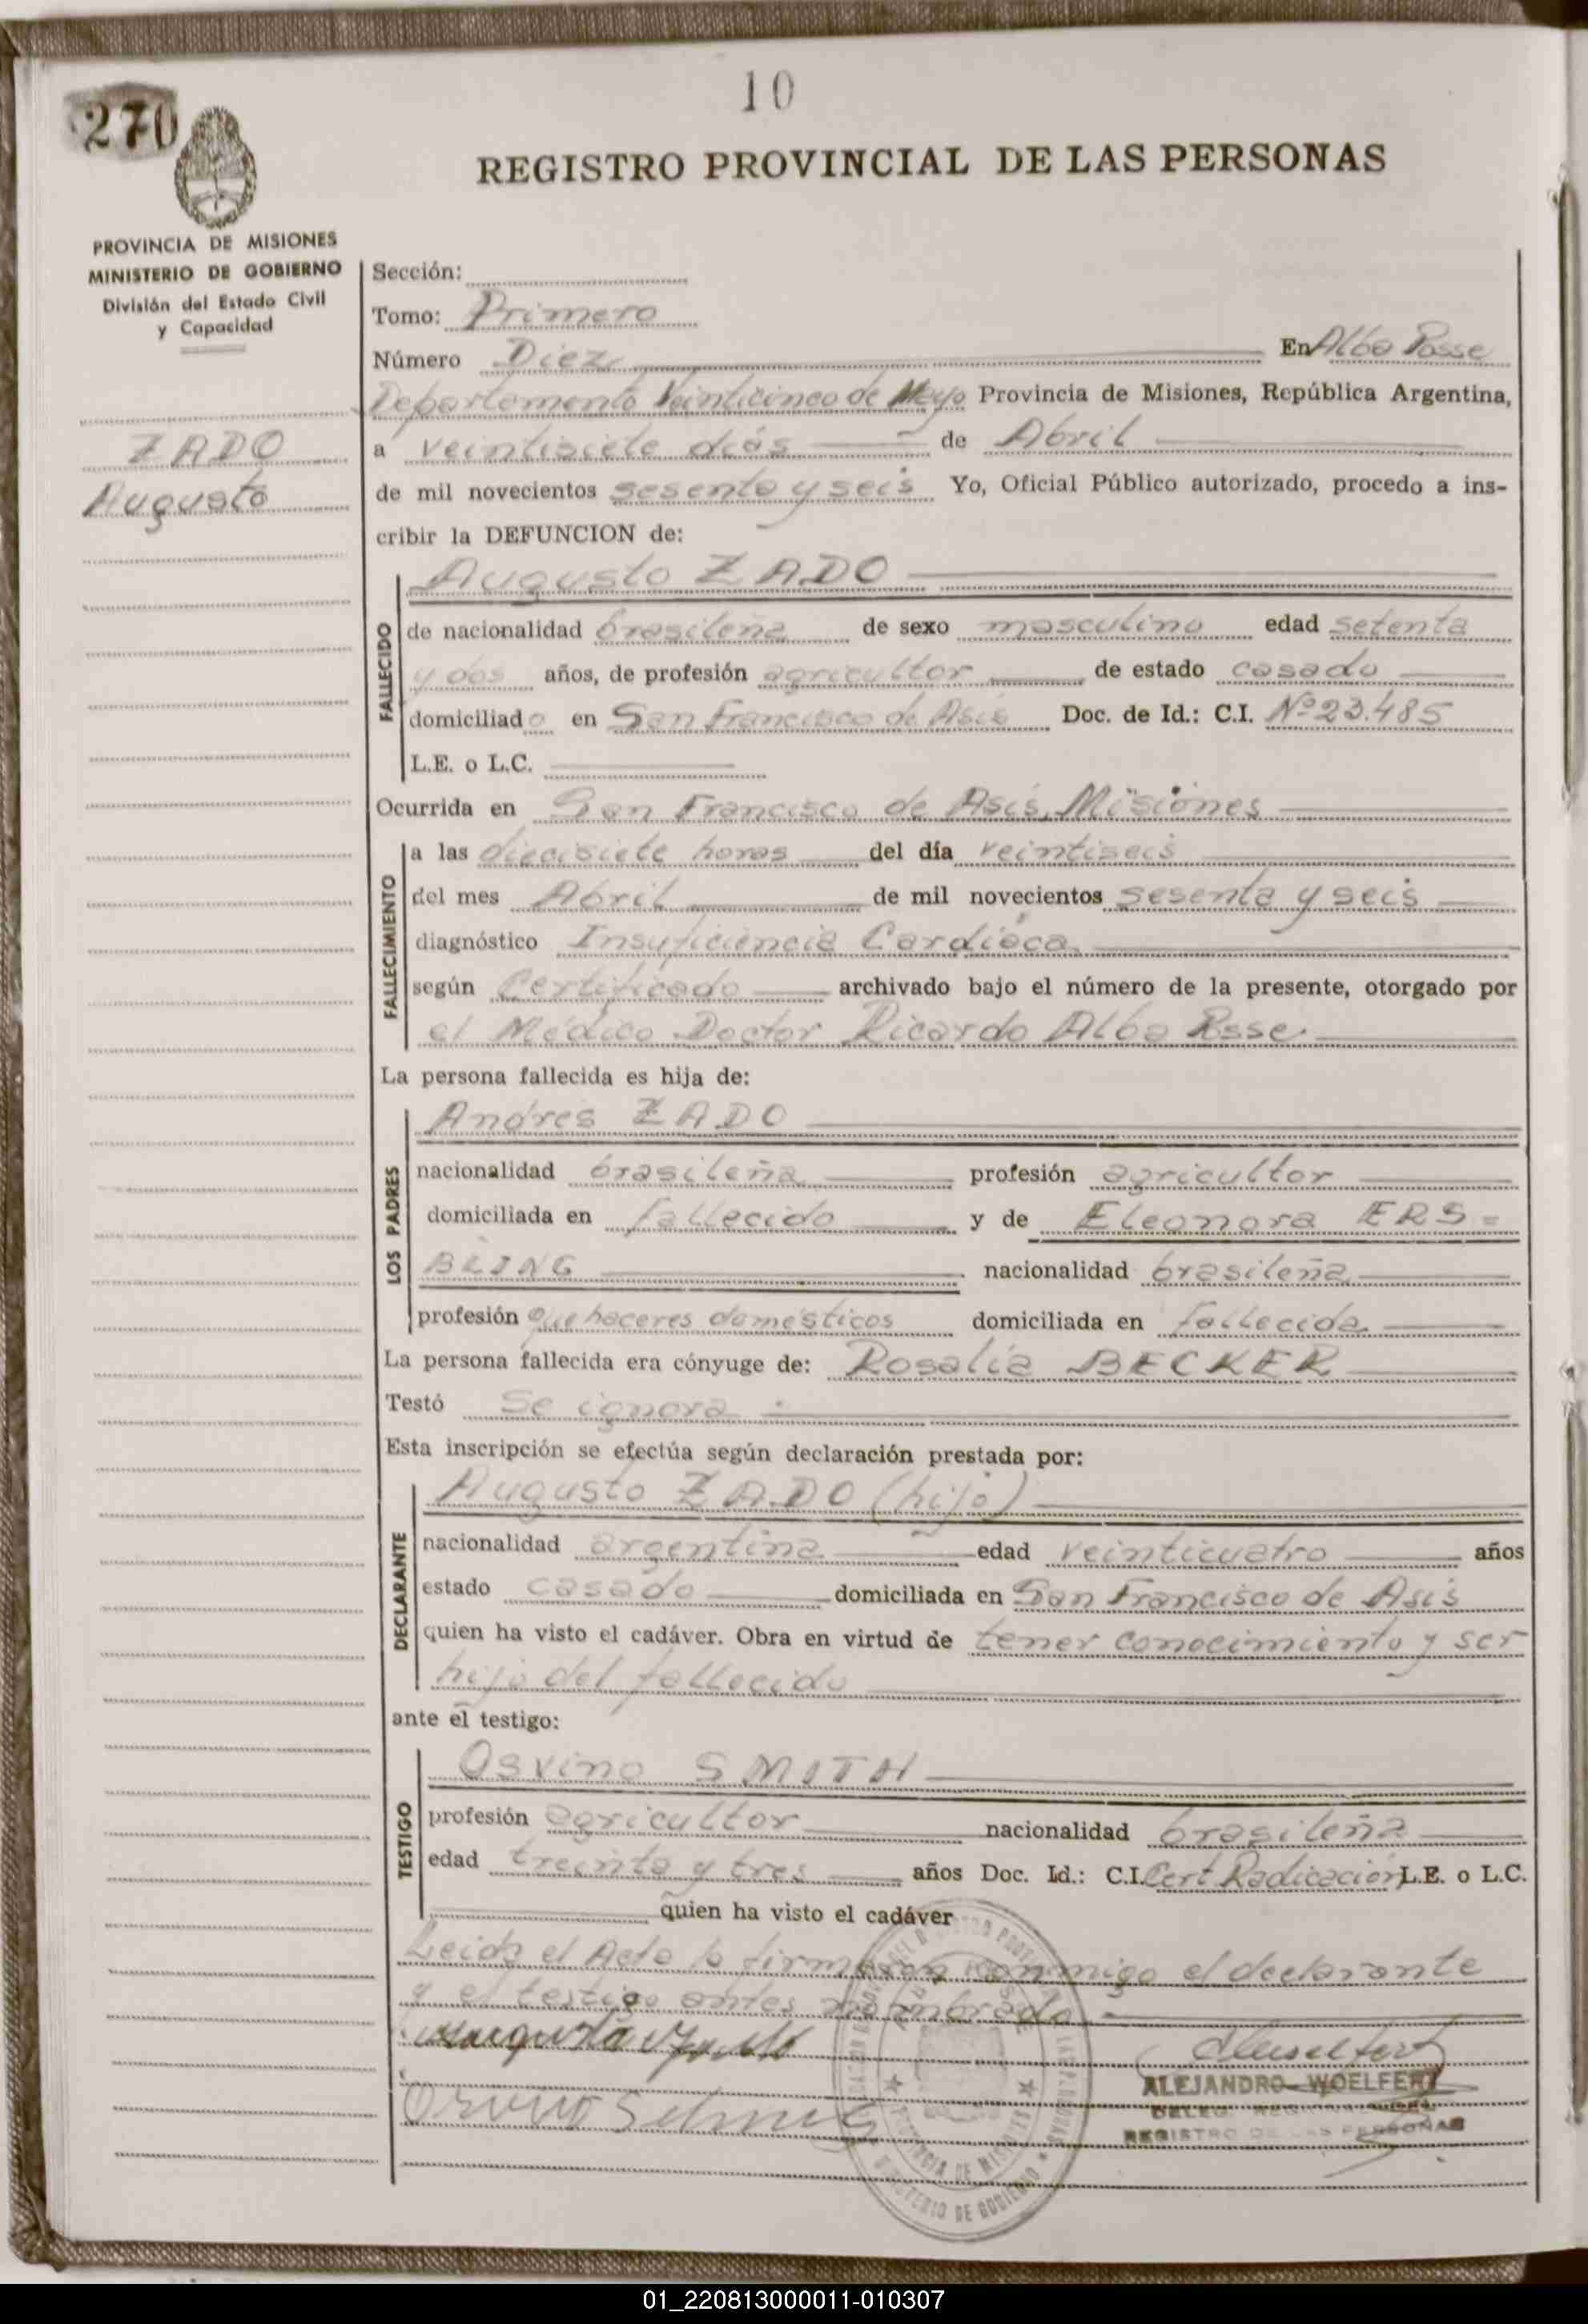 10
270
REGISTRO PROVINCIAL DE LAS PERSONAS
PROVINCIA DE MISIONES
MINISTERIO DE GOBIERNO
División del Estado Civil
y Capacidad
ZADO
Augusto
Sección:
Tomo: Primero
Número Diez En Alba Posse
Departamento Veinticinco de Mayo Provincia de Misiones, República Argentina,
a veintisiete días de Abril
de mil novecientos sesenta y seis Yo, Oficial Público autorizado, procedo a ins-
cribir la DEFUNCION de:
FALLECIDO
Augusto ZADO
de nacionalidad brasileña de sexo masculino edad setenta
y dos años, de profesión agricultor de estado casado
domiciliado en San Francisco de Asís Doc. de Id.: C.I. Nº 23.485
L.E. o L.C.
Ocurrida en San Francisco de Asís, Misiones
FALLECIMIENTO
a las diecisiete horas del día veintiseis
del mes Abril de mil novecientos sesenta y seis
diagnóstico Insuficiencia Cardíaca
según Certificado archivado bajo el número de la presente, otorgado por
el Médico Doctor Ricardo Alba Posse
La persona fallecida es hija de:
LOS PADRES
Andrés ZADO
nacionalidad brasileña profesión agricultor
domiciliada en fallecido y de Eleonora ERS=
BLING nacionalidad brasileña
profesión quehaceres domésticos domiciliada en fallecida
La persona fallecida era cónyuge de: Rosalía BECKER
Testó Se ignora
Esta inscripción se efectúa según declaración prestada por:
DECLARANTE
Augusto ZADO (hijo)
nacionalidad argentina edad veinticuatro años
estado casado domiciliada en San Francisco de Asís
quien ha visto el cadáver. Obra en virtud de tener conocimiento y ser
hijo del fallecido
ante el testigo:
TESTIGO
Osvino SMITH
profesión agricultor nacionalidad brasileña
edad treinta y tres años Doc. Id.: C.I. Cert Radicación L.E. o L.C.
quien ha visto el cadáver
Leída el Acta la firmaron conmigo el declarante
y el testigo antes nombrado
ALEJANDRO WOELFERT
REGISTRO DE LAS PERSONAS
01_220813000011-010307